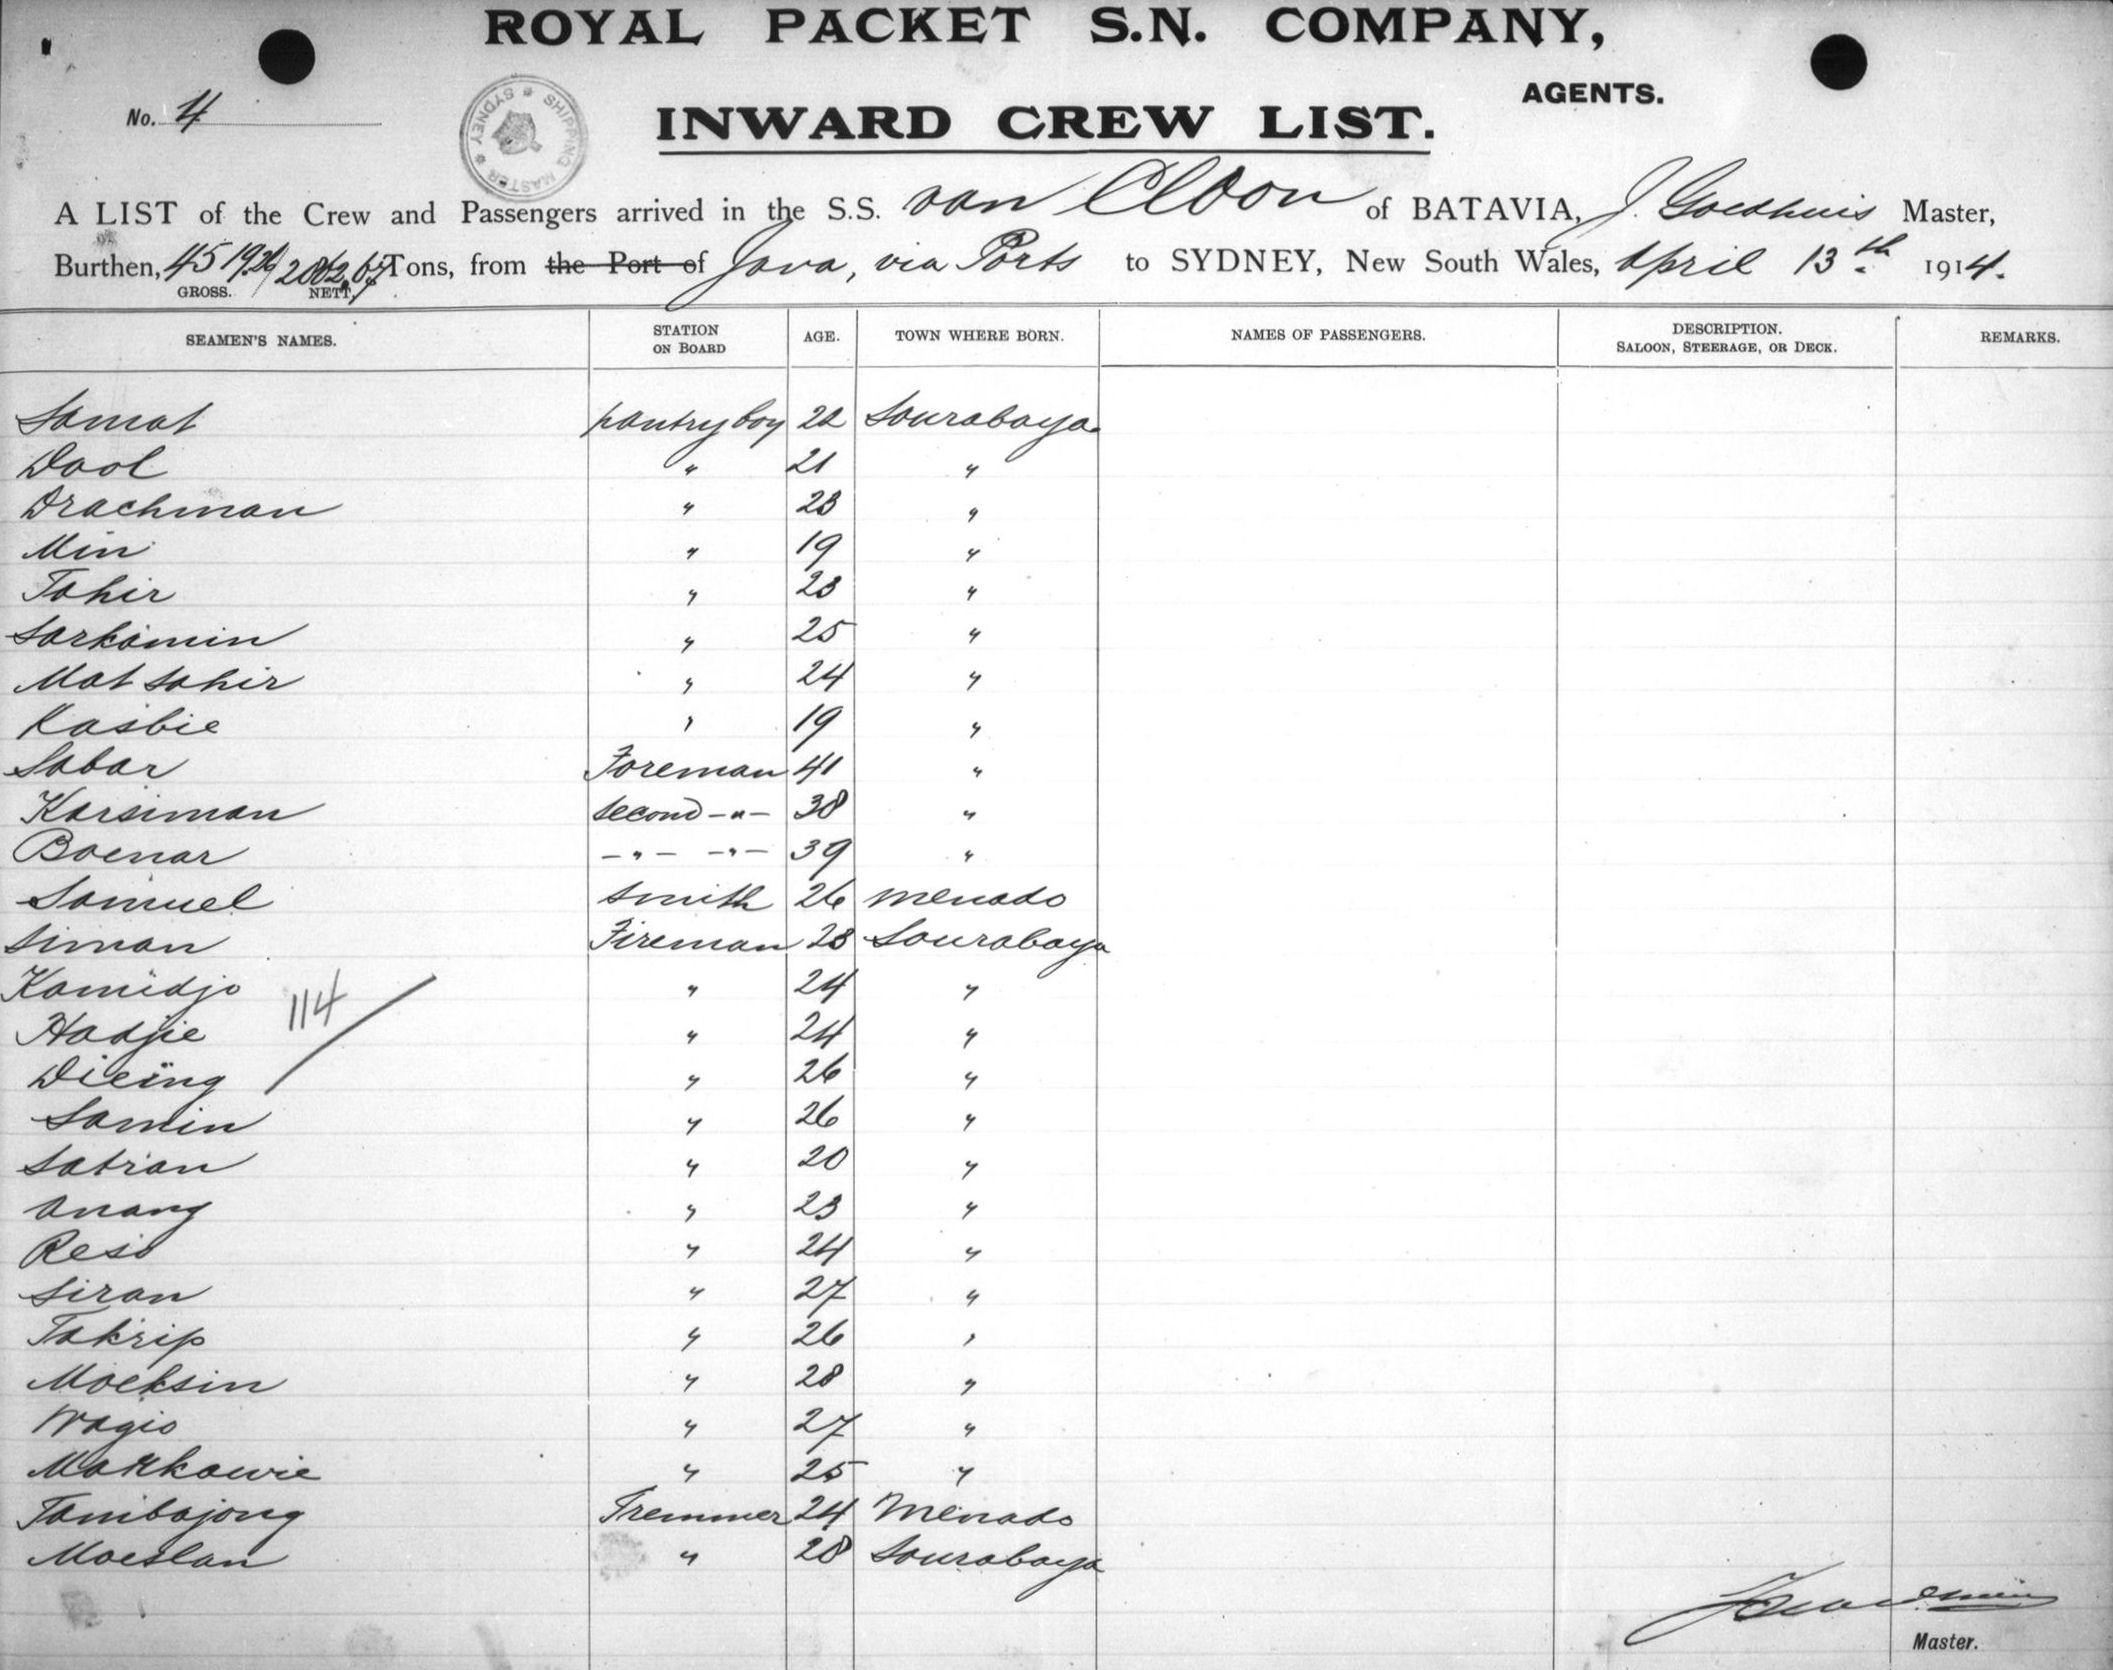 ROYAL PACKET S.N. COMPANY,
AGENTS.
No. 4
SHIPPING MASTER * SYDNEY *
INWARD CREW LIST.
A LIST of the Crew and Passengers arrived in the S.S. van Cloon of BATAVIA, J. Goedhuis Master,
Burthen, 4519.26 / Tons, from the Port of Java, via Ports to SYDNEY, New South Wales, April 13th 1914.
GROSS. NETT.
SEAMEN'S NAMES. STATION ON BOARD AGE. TOWN WHERE BORN. NAMES OF PASSENGERS. DESCRIPTION. SALOON, STEERAGE, OR DECK. REMARKS.
Samat pantry boy 22 Sourabaya
Dool " 21 "
Drachman " 23 "
Min " 19 "
Tahir " 23 "
Sarkamin " 25 "
Mat sahir " 24 "
Kasbie " 19 "
Sabar Foreman 41 "
Karsiman second -"- 38 "
Boenar -"- -"- 39 "
Samuel smith 26 menado
Siman Fireman 23 Sourabaya
Kamidjo " 24 "
114
Hadjie " 24 "
Dieïng " 26 "
Samin " 26 "
Satran " 20 "
Anang " 23 "
Reso " 24 "
Siran " 27 "
Takrip " 26 "
Moeksin " 28 "
Wagio " 27 "
Makkawie " 25 "
Tambajong Tremmer 24 Menado
Moeslan " 28 Sourabaya
Master.